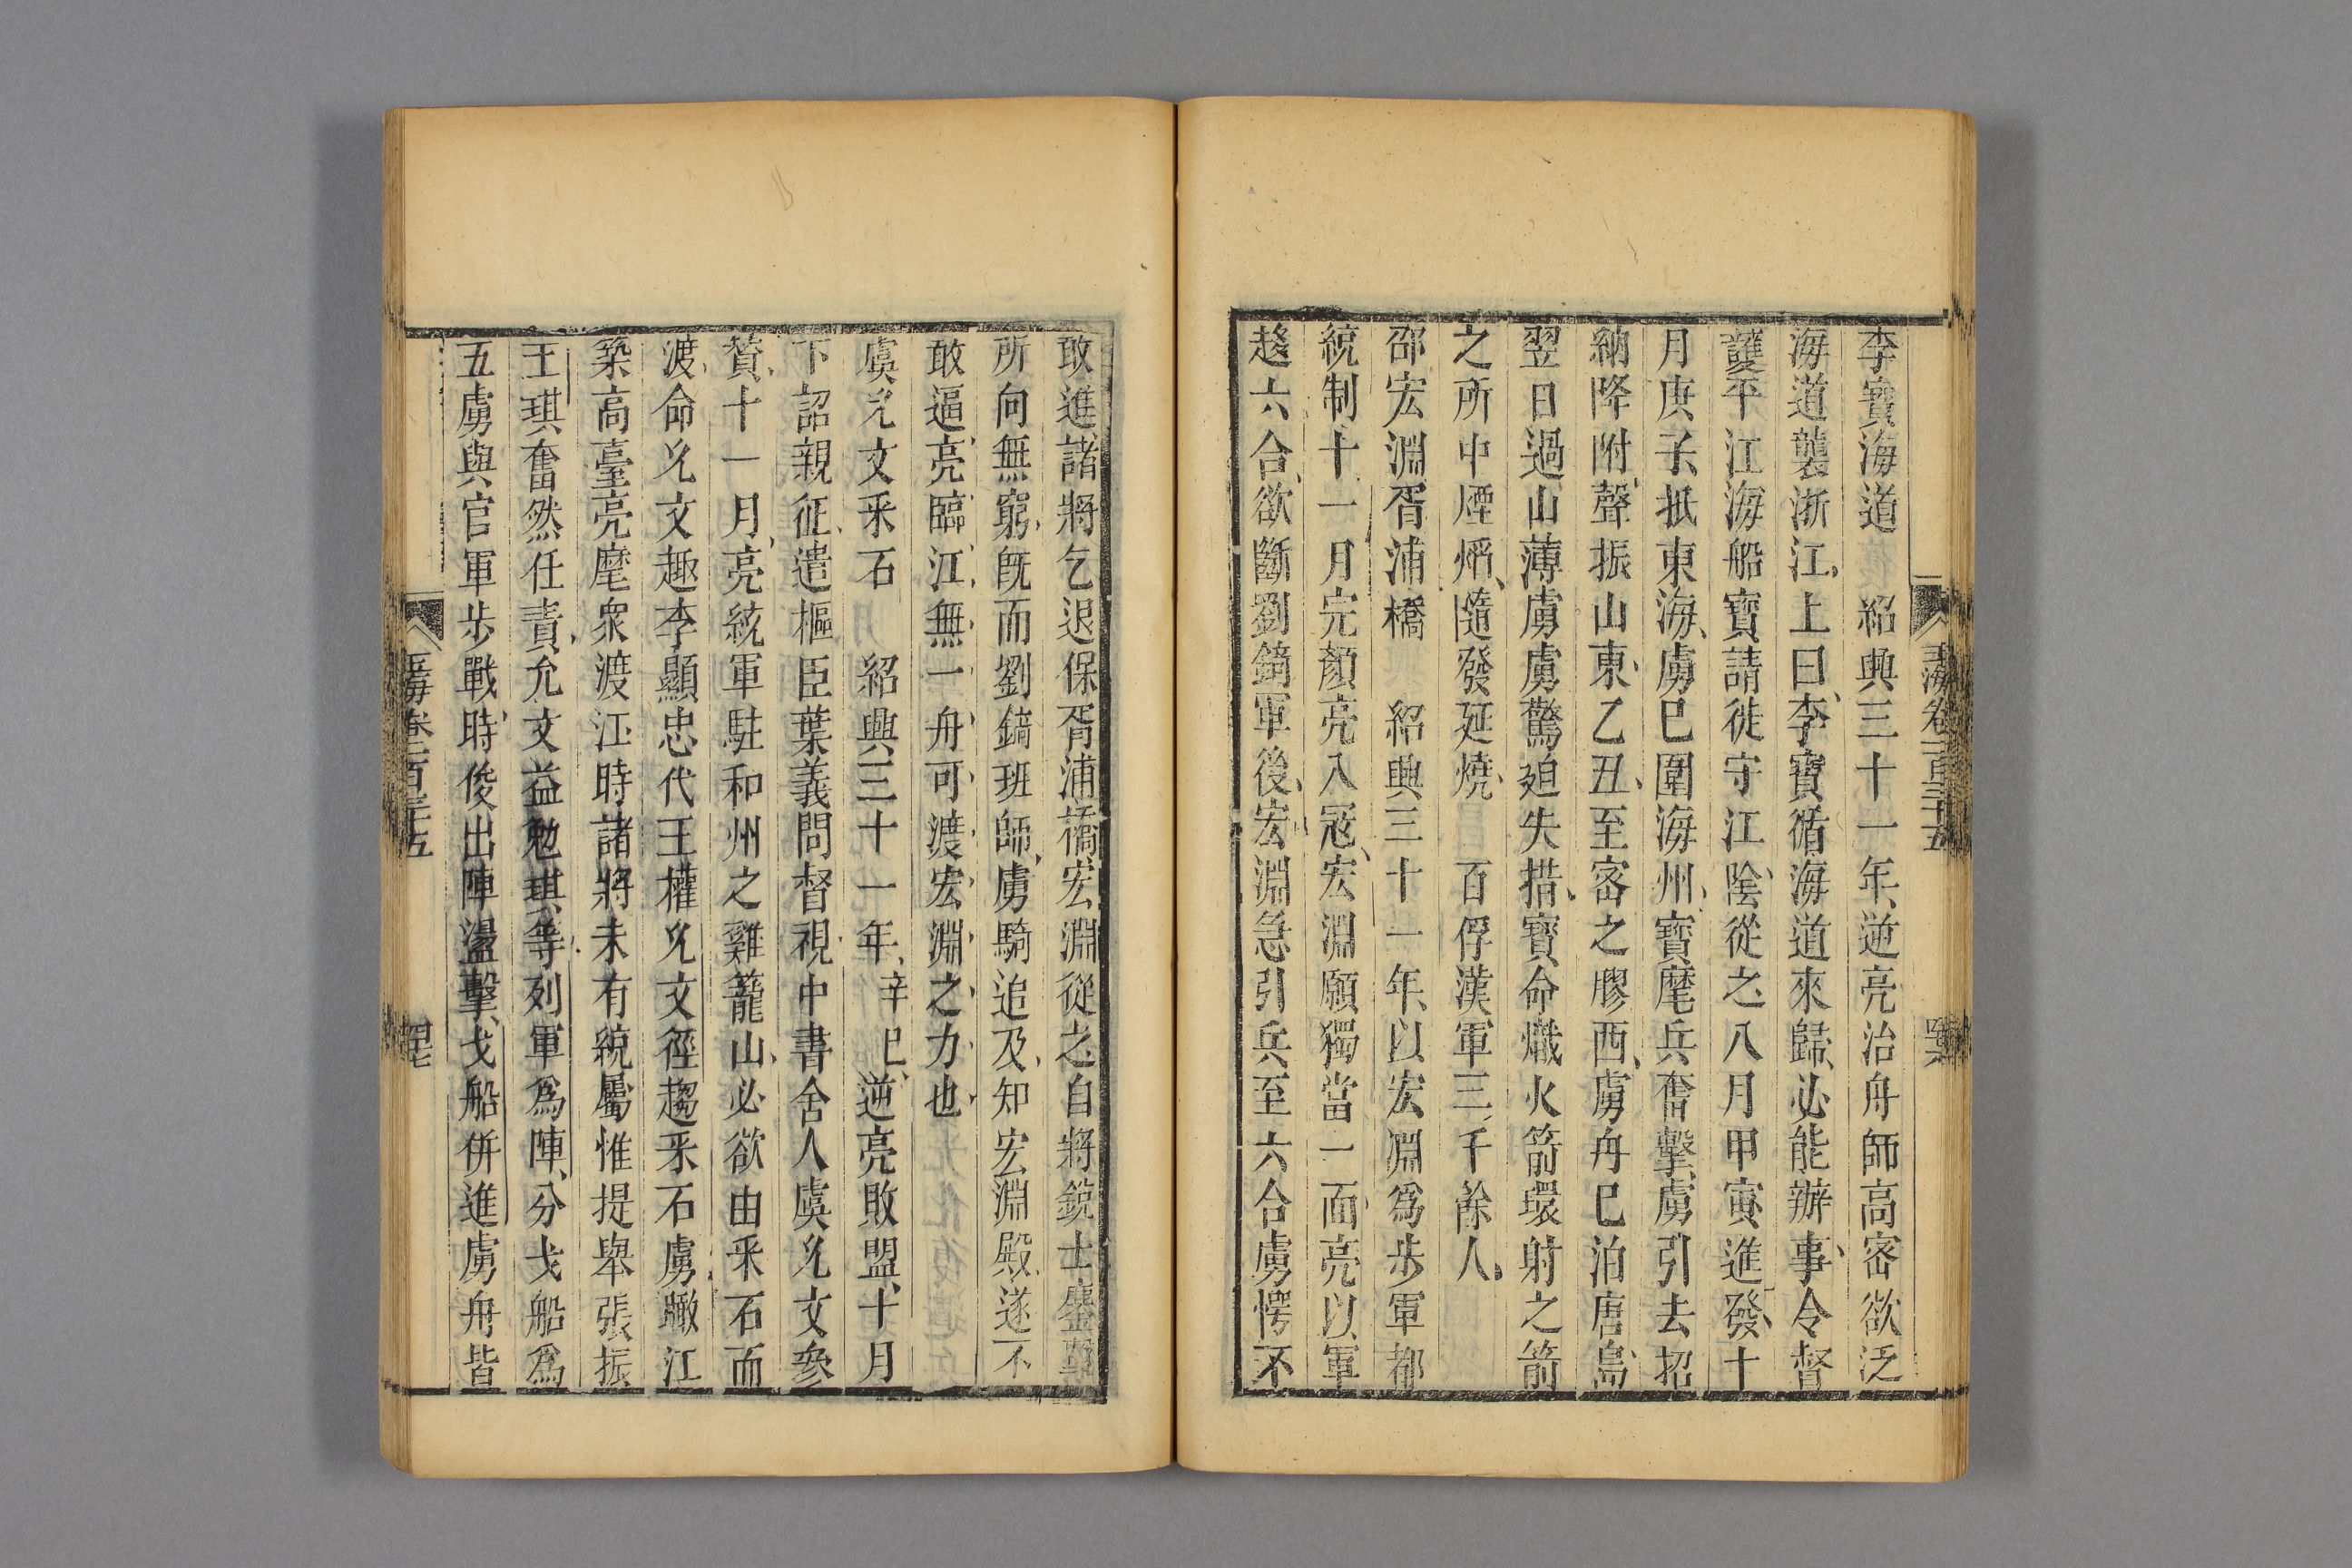 李寶海道　紹興三十一年逆亮治舟師高密欲泛
海道襲浙江上曰李寶循海道來歸必能辦事令督
護平江海船寶請徙守江陰從之八月甲寅進發十
月庚子抵東海虜巳圍海州寶麾兵奮擊虜引去招
納降附聲振山東乙丑至密之膠西虜舟巳泊唐島
翌日過山薄虜虜驚廹失措寶命熾火箭環射之箭
之所中煙焰隨發延燒　百俘漢軍三千餘人
邵宏淵胥浦橋　紹興三十一年以宏淵爲步軍都
統制十一月完顏亮入冦宏淵願獨當一面亮以軍
趍六合欲斷劉錡軍後宏淵急引兵至六合虜愕不
玉海卷一百三十五
敢進諸將乞退保胥浦橋宏淵從之自將銳士鏖擊
所向無窮旣而劉錡班師虜騎追及知宏淵殿遂不
敢逼亮臨江無一舟可渡宏淵之力也
虞允文采石　紹興三十一年辛巳逆亮敗盟十月
下詔親征遣樞臣葉義問督視中書舍人虞允文參
贊十一月亮統軍駐和州之雞籠山必欲由采石而
渡命允文趣李顯忠代王權允文徑趨采石虜瞰江
築高臺亮麾衆渡江時諸將未有統屬惟提舉張振
王琪奮然任責允文益勉琪等列軍爲陣分戈船爲
五虜與官軍步戰時俊出陣盪擊戈船併進虜舟皆
玉海卷一百三十五
四十七